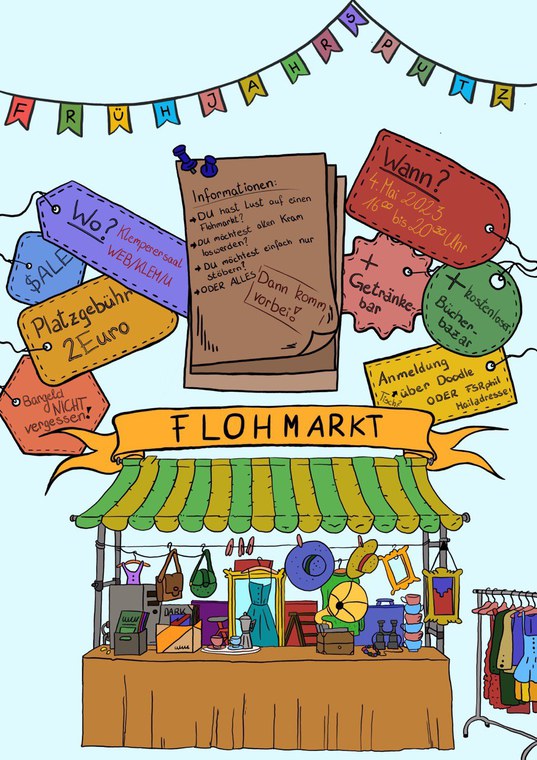 FRÜHJAHRSPUTZ
Informationen:
→Du hast Lust auf einen
Flohmarkt?
→Du möchtest alten Kram
loswerden?
→Du möchtest einfach nur
stöbern?
→ODER ALLES?
Dann komm
vorbei!
Wo?
Klemperersaal
WEB/KLEM/U
$ALE
Platzgebühr
2Euro
Bargeld
NICHT
vergessen!
Wann?
4. Mai 2023
16⁰⁰ bis 20³⁰ Uhr
+
Getränke-
bar
+ kostenloser
Bücher-
bazar
Anmeldung
über Doodle
Tisch?
ODER FSRphil
Mailadresse!
FLOHMARKT
DARK